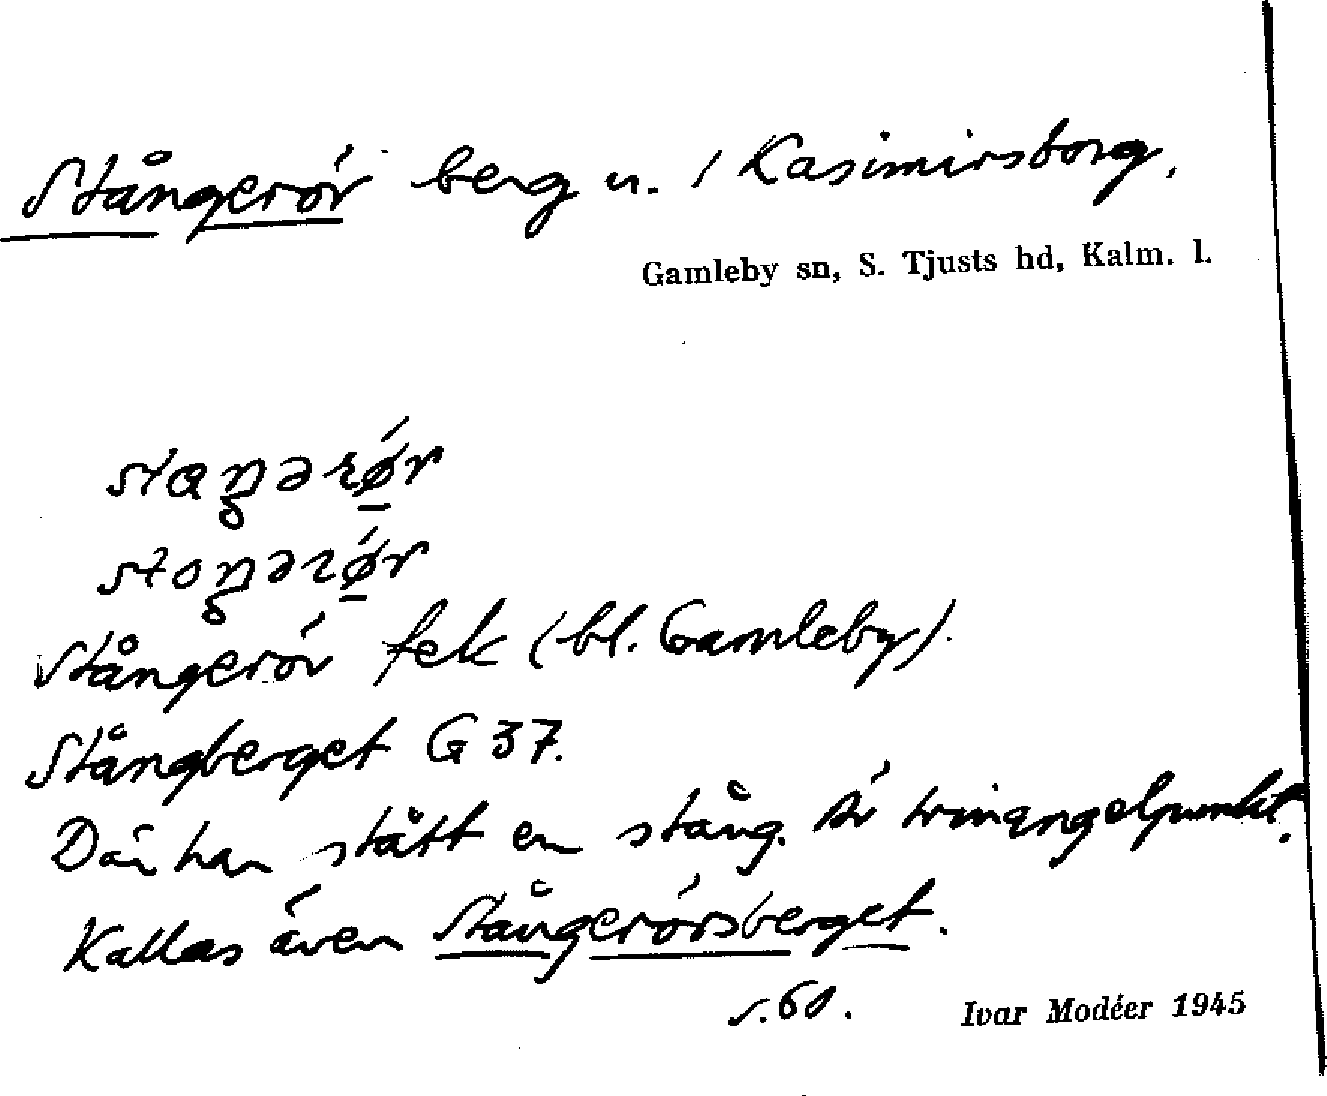 Stångerör berg n. / Kasimirsborg.
Gamleby sn, S. Tjusts hd, Kalm. l.
Stångerör fek (bl. Gamleby).
Stångberget G 37.
Där har stått en stång. Är triangelpunkt.
Kallas även Stångerörsberget.
s. 60.
Ivar Modéer 1945